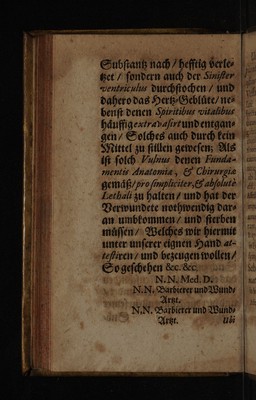 Substantz nach / hefftig verle-
tzet / sondern auch der Sinister
ventriculus durchstochen / und
dahero das Hertz-Geblüte / ne-
benst denen Spiritibus vitalibus
häuffig extravasirt und entgan-
gen / Solches auch durch kein
Mittel zu stillen gewesen; Als
ist solch Vulnus denen Funda-
mentis Anatomiæ, & Chirurgiæ
gemäß / pro simpliciter, & absolutè
Lethali zu halten / und hat der
Verwundete nothwendig dar-
an umbkommen / und sterben
müssen / Welches wir hiermit
unter unserer eignen Hand at-
testiren / und bezeugen wollen /
So geschehen &c. &c.
N. N. Med. D.
N. N. Barbierer und Wund-
Artzt.
N. N. Barbierer und Wund-
Artzt.